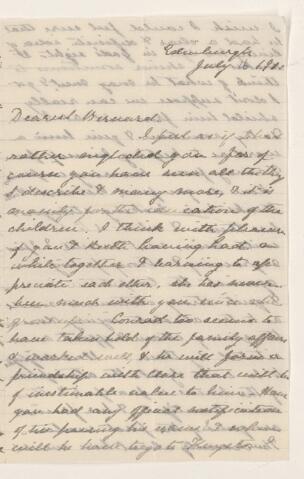 Edinburgh
July
Dearest Bernard
I feel as if I had
rather neglected you for of
course you have seen all the things
I describe & many more, & it is
mainly for the edu cation of the
children. I think with pleasure
of you & Keith having had a
while together & learning to ap
preciate each other, he has never
been much with you since
Conrad too seems to
have taken hold of the family affairs
& worked well, & he will form a
friendship with Close that will be
of inestimable value to him. Have
you had any official notification
of his passing his exam I
will he have to go to Kingston